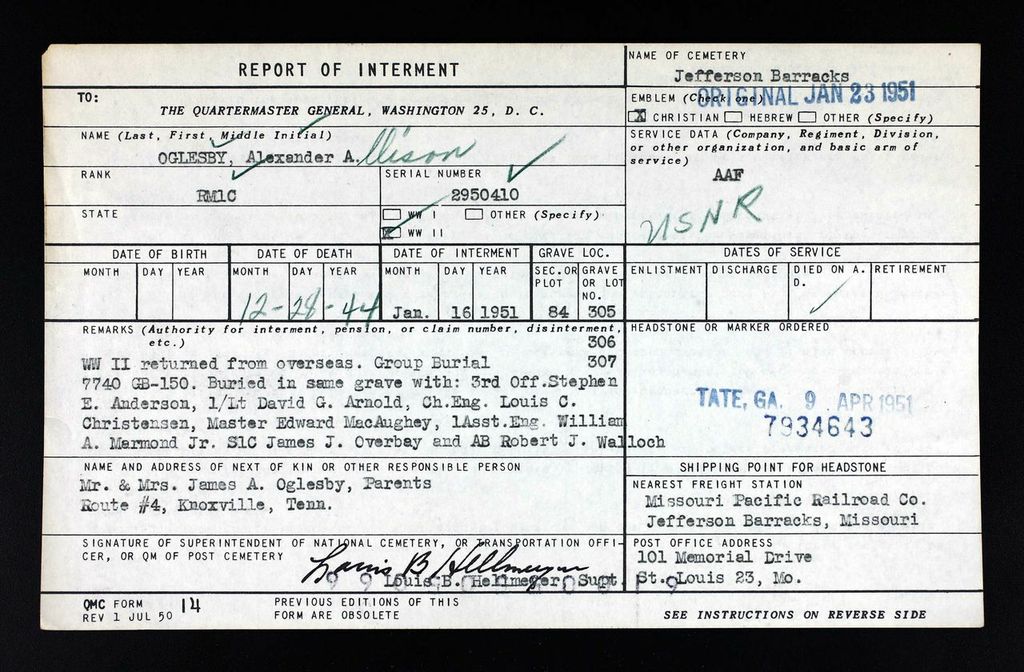 REPORT OF INTERMENT
NAME OF CEMETERY
Jefferson Barracks
TO:
THE QUARTERMASTER GENERAL, WASHINGTON 25, D. C.
EMBLEM (Check one)
ORIGINAL JAN 23 1951
X CHRISTIAN HEBREW OTHER (Specify)
NAME (Last, First, Middle Initial)
OGLESBY, Alexander A. llison
SERVICE DATA (Company, Regiment, Division,
or other organization, and basic arm of
service)
AAF
USNR
RANK
RM1C
SERIAL NUMBER
2950410
STATE
WW I OTHER (Specify)
X WW II
DATE OF BIRTH DATE OF DEATH DATE OF INTERMENT GRAVE LOC. DATES OF SERVICE
MONTH DAY YEAR MONTH DAY YEAR MONTH DAY YEAR SEC. OR PLOT GRAVE OR LOT NO. ENLISTMENT DISCHARGE DIED ON A. D. RETIREMENT
12-28-44 Jan. 16 1951 84 305
REMARKS (Authority for interment, pension, or claim number, disinterment,
etc.) 306
WW II returned from overseas. Group Burial 307
7740 GB-150. Buried in same grave with: 3rd Off.Stephen
E. Anderson, 1/Lt David G. Arnold, Ch.Eng. Louis C.
Christensen, Master Edward MacAughey, 1Asst.Eng. William
A. Marmond Jr. S1C James J. Overbay and AB Robert J. Walloch
HEADSTONE OR MARKER ORDERED
TATE, GA. 9 APR 1951
7934643
NAME AND ADDRESS OF NEXT OF KIN OR OTHER RESPONSIBLE PERSON
Mr. & Mrs. James A. Oglesby, Parents
Route #4, Knoxville, Tenn.
SHIPPING POINT FOR HEADSTONE
NEAREST FREIGHT STATION
Missouri Pacific Railroad Co.
Jefferson Barracks, Missouri
SIGNATURE OF SUPERINTENDENT OF NATIONAL CEMETERY, OR TRANSPORTATION OFFI-
CER, OR QM OF POST CEMETERY
Louis B Hellmeyer
Louis B. Hellmeyer Supt.
POST OFFICE ADDRESS
101 Memorial Drive
St. Louis 23, Mo.
QMC FORM 14
REV 1 JUL 50
PREVIOUS EDITIONS OF THIS
FORM ARE OBSOLETE
SEE INSTRUCTIONS ON REVERSE SIDE